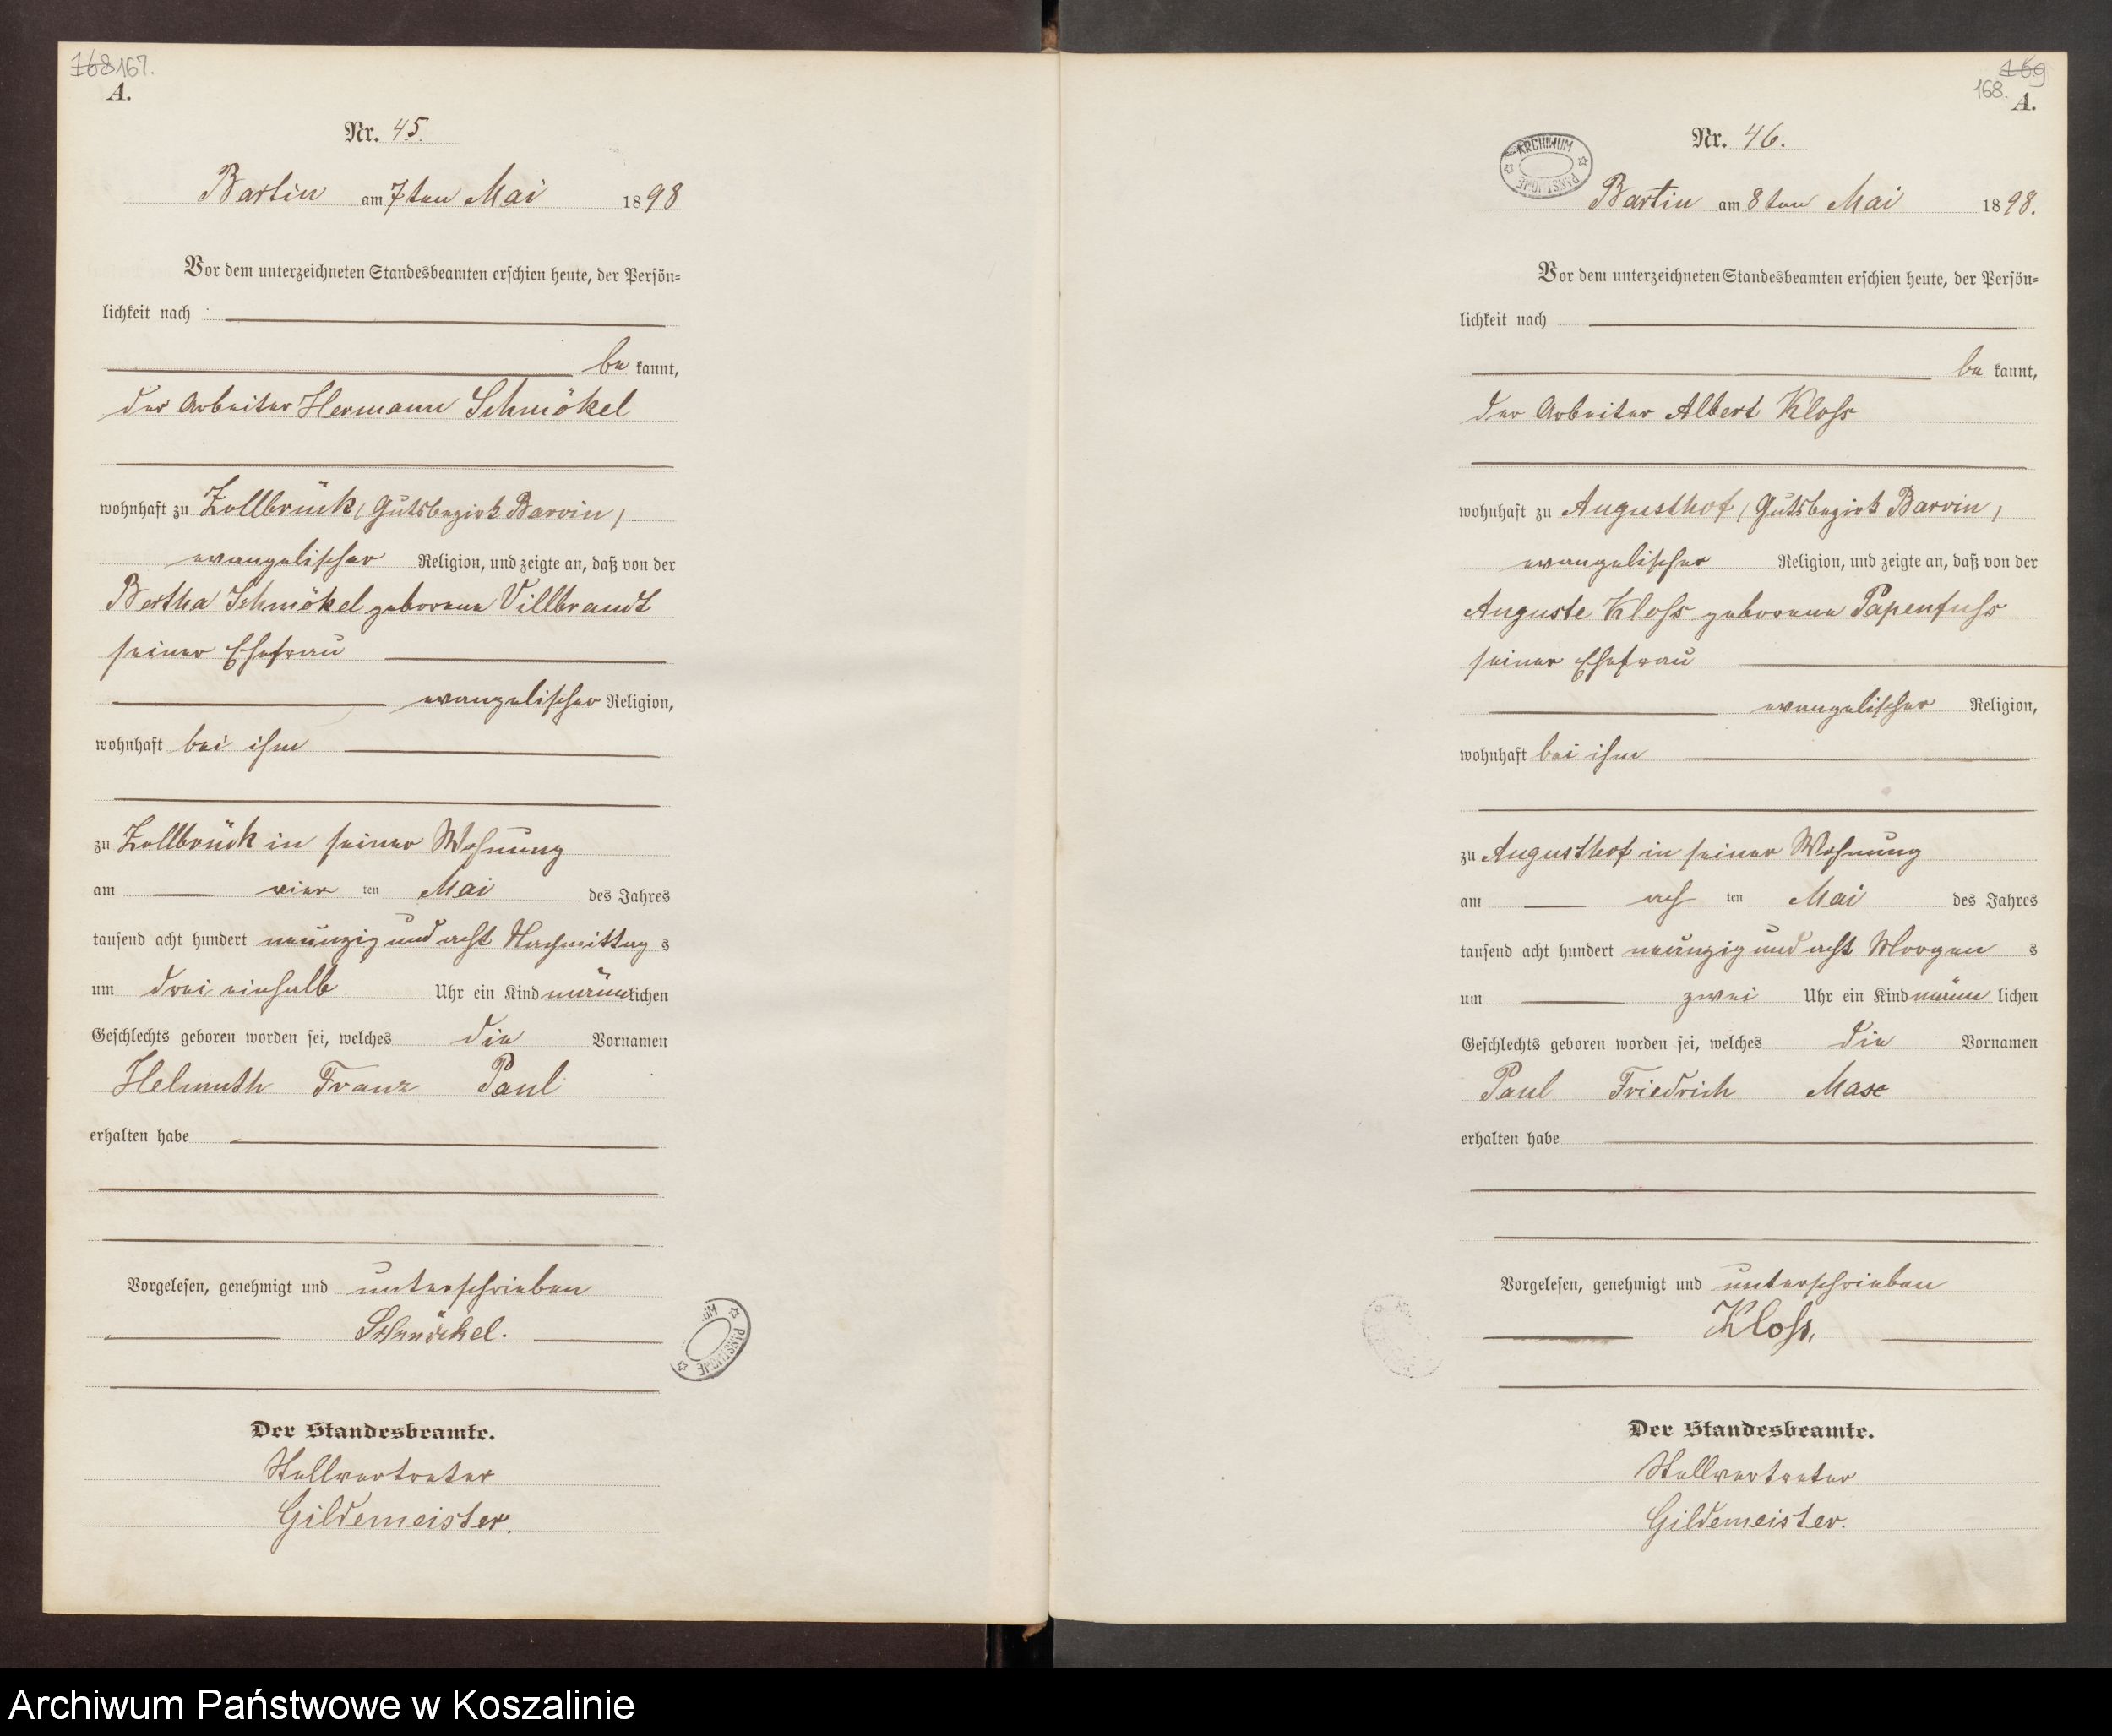 168 167.
A.
Nr. 45.
Bartin am 7ten Mai 1898
Vor dem unterzeichneten Standesbeamten erschien heute, der Persön=
lichkeit nach
be kannt,
der Arbeiter Hermann Schmökel
wohnhaft zu Zollbrück, (Gutsbezirk Barvin,)
evangelischer Religion, und zeigte an, daß von der
Bertha Schmökel geborene Villbrandt
seiner Ehefrau
evangelischer Religion,
wohnhaft bei ihm
zu Zollbrück in seiner Wohnung
am vier ten Mai des Jahres
tausend acht hundert neunzig und acht Nachmittag s
um drei einhalb Uhr ein Kind männlichen
Geschlechts geboren worden sei, welches die Vornamen
Helmuth Franz Paul
erhalten habe
Vorgelesen, genehmigt und unterschrieben
Schmöckel.
Der Standesbeamte.
Stellvertreter
Gildemeister.
169
168.
A.
Nr. 46.
ARCHIWUM PAŃSTWOWE
Bartin am 8ten Mai 1898.
Vor dem unterzeichneten Standesbeamten erschien heute, der Persön=
lichkeit nach
be kannt,
der Arbeiter Albert Kloß
wohnhaft zu Augusthof, (Gutsbezirk Barvin,)
evangelischer Religion, und zeigte an, daß von der
Auguste Kloß geborene Papenfuß
seiner Ehefrau
evangelischer Religion,
wohnhaft bei ihm
zu Augusthof in seiner Wohnung
am ach ten Mai des Jahres
tausend acht hundert neunzig und acht Morgen s
um zwei Uhr ein Kind männ lichen
Geschlechts geboren worden sei, welches die Vornamen
Paul Friedrich Max
erhalten habe
Vorgelesen, genehmigt und unterschrieben
Kloß,
Der Standesbeamte.
Stellvertreter
Gildemeister.
Archiwum Państwowe w Koszalinie